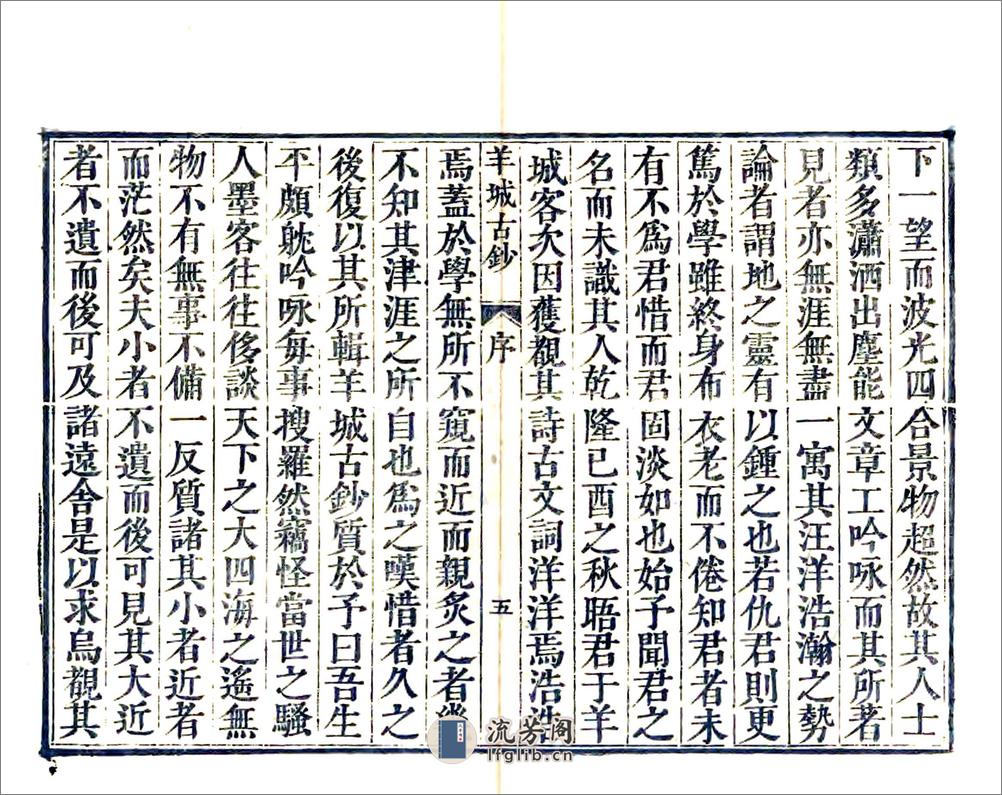 下一望而波光四合景物超然故其人士
類多瀟洒出塵能文章工吟咏而其所著
見者亦無涯無盡一寓其汪洋浩瀚之勢
論者謂地之靈有以鍾之也若仇君則更
篤於學雖終身布衣老而不倦知君者未
有不爲君惜而君固淡如也始予聞君之
名而未識其人乾隆已酉之秋晤君于羊
城客次因獲觀其詩古文詞洋洋焉浩浩
羊城古鈔 序 五
焉蓋於學無所不窺而近而親炙之者幾
不知其津涯之所自也爲之嘆惜者久之
後復以其所輯羊城古鈔質於予曰吾生
平頗躭吟咏每事搜羅然竊怪當世之騷
人墨客往往侈談天下之大四海之遙無
物不有無事不備一反質諸其小者近者
而茫然矣夫小者不遺而後可見其大近
者不遺而後可及諸遠舍是以求烏覩其
流芳阁
lfglib.cn